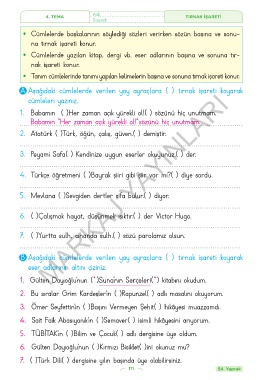 4. TEMA
TIRNAK İŞARETİ
Cümlelerde başkalarının söylediği sözleri verirken sözün başına ve sonuna tırnak işareti konur.
Cümlelerde yazılan kitap, dergi vb. eser adlarının başına ve sonuna tırnak işareti konur.
Tanım cümlelerinde tanımı yapılan kelimelerin başına ve sonuna tırnak işareti konur.
A Aşağıdaki cümlelerde verilen yay ayraçlara ( ) tırnak işareti koyarak cümleleri yazınız.
1. Babamın ( )Her zaman açık yürekli ol!( ) sözünü hiç unutmam.
Babamın "Her zaman açık yürekli ol!"sözünü hiç unutmam.
2. Atatürk ( )Türk, öğün, çalış, güven.( ) demiştir.
3. Peyami Safa( ) Kendinize uygun eserler okuyunuz.( ) der.
4. Türkçe öğretmeni ( )Bayrak şiiri gibi şiir var mı?( ) diye sordu.
5. Mevlana ( )Sevgiden dertler şifa bulur.( ) diyor.
6. ( )Çalışmak hayat, düşünmek ışıktır.( ) der Victor Hugo.
7. ( )Yurtta sulh, cihanda sulh.( ) sözü parolamız olsun.
B Aşağıdaki cümlelerde verilen yay ayraçlara ( ) tırnak işareti koyarak eser adlarının altını çiziniz.
1. Gülten Dayıoğlu'nun (")Suna'nın Serçeleri(") kitabını okudum.
2. Bu sıralar Grim Kardeşlerin ( )Rapunzel( ) adlı masalını okuyorum.
3. Ömer Seyfettin'in ( )Başını Vermeyen Şehit( ) hikâyesi muazzamdı.
4. Sait Faik Abasıyanık'ın ( )Semaver( ) isimli hikâyesini arıyorum.
5. TÜBİTAK'ın ( )Bilim ve Çocuk( ) adlı dergisine üye oldum.
6. Gülten Dayıoğlu'nun ( )Kırmızı Bisiklet( )ini okunuz mu?
7. ( )Türk Dili( ) dergisine yılın başında üye olabilirsiniz.
111
54. Yaprak
MARKAJ YAYINLARI